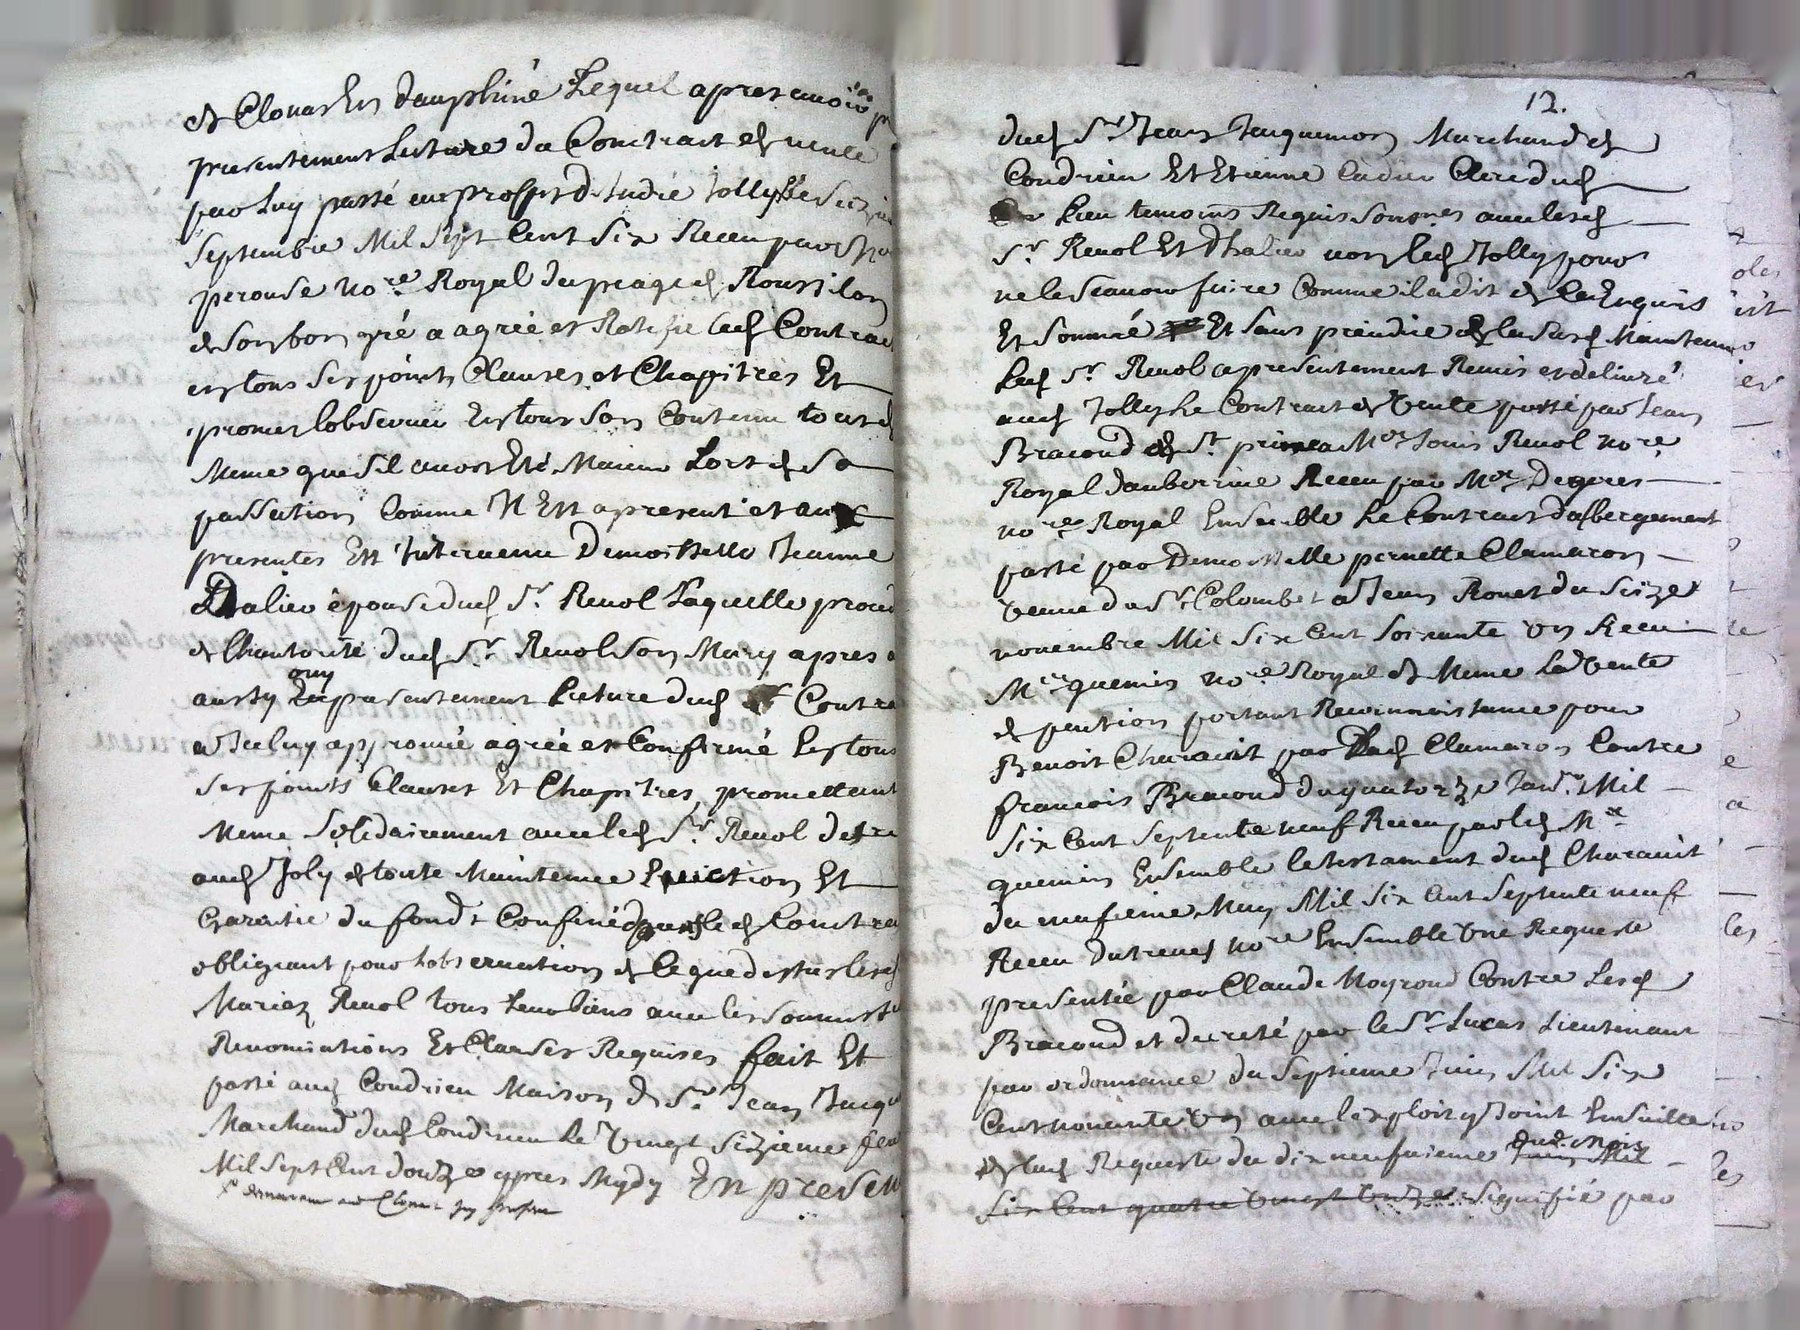 de Clonas En dauphiné Lequel apres avoir
presentement Lecture du Contract de vente
par Luy passé au proffit d'Andié Jolly Le
Septembre Mil Sept Cent Six Receu par
perouse no.re Royal du peage de Roussilon
de son bon gré a agréé et Ratiffié led Contract
en tous Ses points Clauses et Chapitres Et
promet lobserver En tout son Contenu tout de
Meme que sil avoit Eté Maieur Lors de Sa
passation Comme Il Est apresent et aux
presentes Est Intervenue Demoiselle Jeanne
Dhalieu epouse dud S.r Revol Laquelle
de lhautorité dud S.r Revol Son Mary apres
aussy ouy presentement Lecture dud Contra
a Icelluy approuvé agréé et Confirmé En tous
Ses points Clauses Et Chapitres promettant
Meme Solidairement avec led S.r Revol detre
aud Joly de toute Maintenue Eviction Et
Garentie du fond Confiné led Contra
obligeant pour Lobservation de Ce que dessus lesd
Mariez Revol tous Leurs biens avec les
Renonciations Et Clauses Requises fait Et
passé aud Condrieu Maison de S.r Jean Jacqu
Marchand dud Condrieu Le Vingt Sizieme
Mil Sept Cent douze apres Mydy En presen
12.
dud S.r Jean Jacquemon Marchand de
Condrieu Et Etienne Cadier Clerc dud
Lieu temoins Requis Soussignés avec lesd
S.r Revol Et Dhalieu non led Jolly pour
ne le Scavoir faire Comme il a dit de Ce Enquis
Et Sommé Et Sans prejudice de la Susd Maintenue
Led S.r Revol a presentement Remis et delivré
aud Jolly Le Contract de Vente passé par Jean
Bracoud de S.t prim a M.re Louis Revol no.re
Royal d'auberrive Receu par M.re Degeres
no.re Royal Ensemble Le Contract dalbergement
passé par Demoiselle pernette Clamaron
veuve du S.r Colombet a Jean Rouet du Seize
novembre Mil Six Cent Soixante un Receu
M.re quemin no.re Royal de Meme La Vente
de pention portant Reconnoissance pour
Benoit Charavit par Clamaron Contre
francois Bracoud du quatorze Janv.r Mil
Six Cent Septente neuf Receu par led M.re
quemin Ensemble le testament dud Charavit
du neufieme May Mil Six Cent Septente neuf
Receu Dutreuve no.re Ensemble Une Requeste
presentée par Claude Moyroud Contre Led
Bracoud et decreté par le S.r Lucas Lieutenant
par ordonnance du Septieme Juin Mil Six
Cent nonente Un avec lexploit y Joint Ensuitte
de lad Requeste du dix neufvieme dud. mois Juin Mil
Six Cent quatre Vingt onze Signifié par